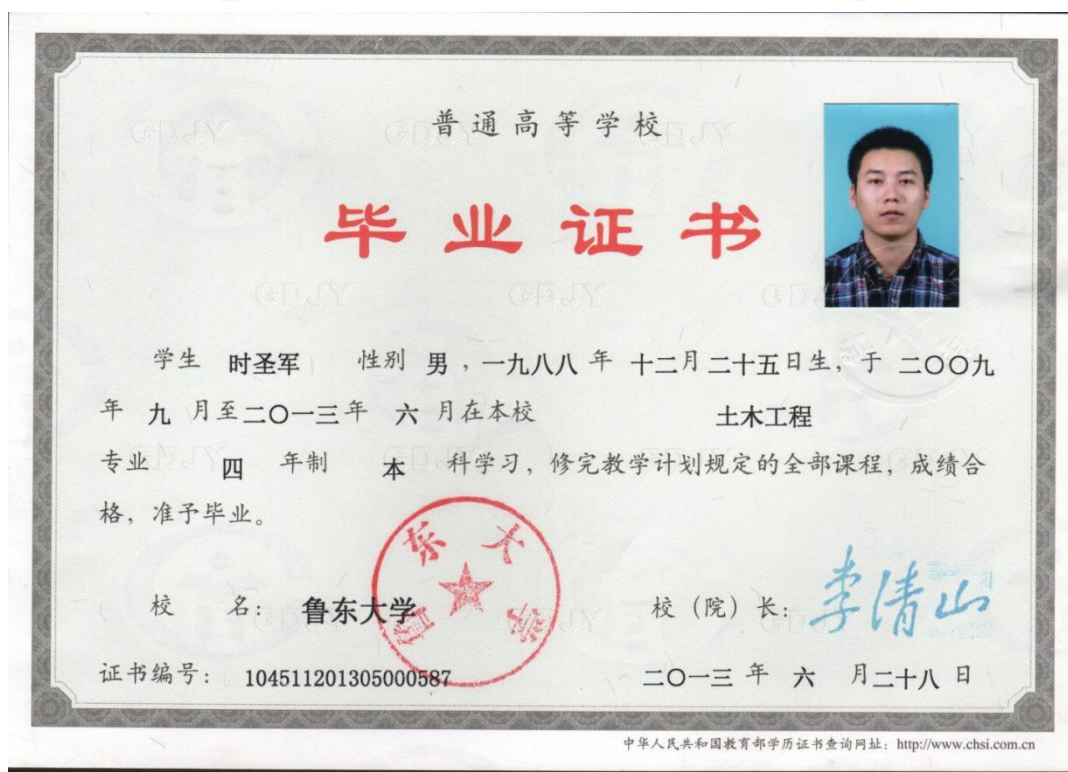 普通高等学校
毕业证书
学生 时圣军 性别 男，一九八八 年 十二月二十五日生，于 二〇〇九
年 九 月至二〇一三年 六 月在本校 土木工程
专业 四 年制 本 科学习，修完教学计划规定的全部课程，成绩合
格，准予毕业。
鲁东大学
校 名： 鲁东大学 校（院）长：李清山
证书编号： 104511201305000587 二〇一三 年 六 月二十八 日
中华人民共和国教育部学历证书查询网址：http://www.chsi.com.cn